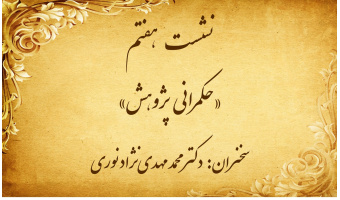 نشست هفتم
«حکمرانی پژوهش»
سخنران: دکتر محمد مهدی نژاد نوری